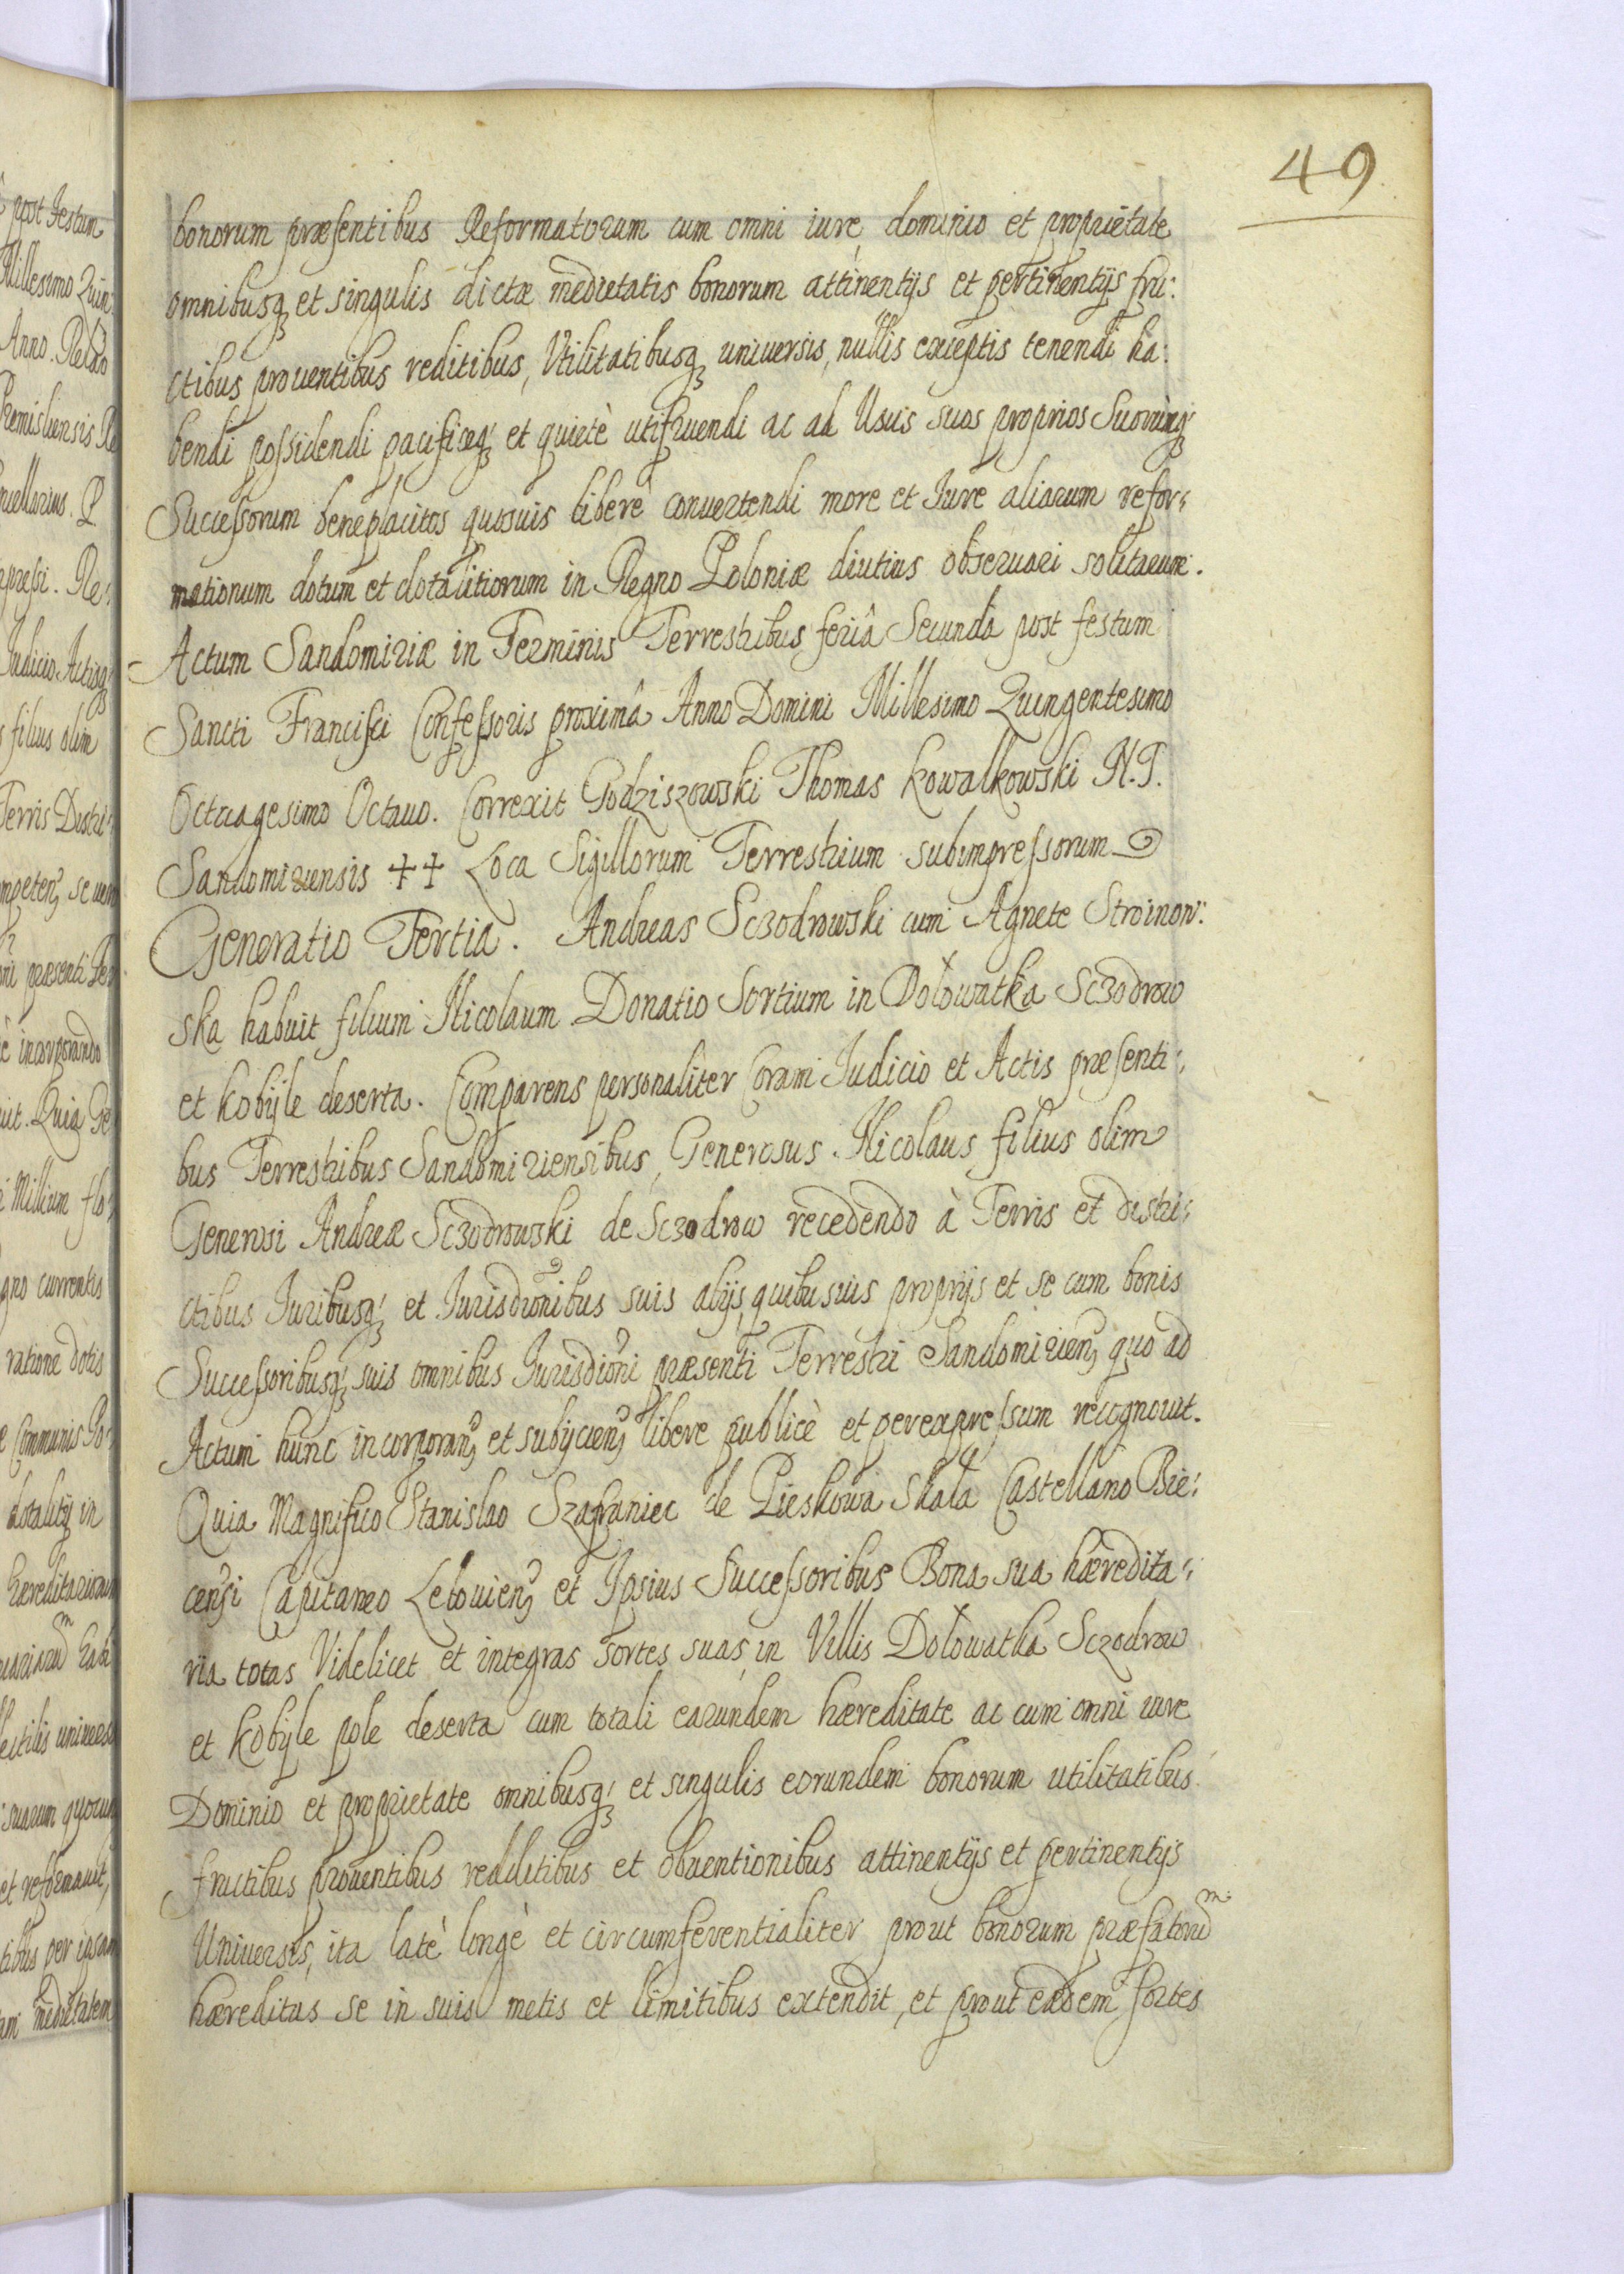 49
bonorum præsentibus Reformatorum cum omni iure, dominio et proprietate
omnibusq; et singulis dictæ medietatis bonorum attinentijs et pertinentijs fru:
ctibus prouentibus reditibus, Vtilitatibusq; uniuersis, nullis exceptis tenendi ha:
bendi possidendi pacificeq; et quietè utifruendi ac ad Usus suos proprios Suorumq;
Successorum beneplacitos quosuis liberè conuertendi more et Iure aliarum refor:
mationum dotum et dotalitiorum in Regno Poloniæ diutius obseruari solitarum.
Actum Sandomiriæ in Terminis Terrestribus feriâ Secundâ post festum
Sancti Francisci Confessoris proximâ Anno Domini Millesimo Quingentesimo
Octuagesimo Octauo. Correxit Godziszowski Thomas Kowalkowski N.T.
Sandomiriensis ++ Loca Sigillorum Terrestrium subimpressorum
Generatio Tertia. Andreas Sczodrowski cum Agnete Stroinow:
ska habuit filium Nicolaum Donatio Sortium in Dołowatka Sczodrow
et Kobÿle deserta. Comparens personaliter Coram Iudicio et Actis præsenti:
bus Terrestribus Sandomiriensibus, Generosus Nicolaus filius olim
Generosi Andreæ Sczodrowski de Sczodrow recedendo à Terris et distri:
ctibus Iuribusq; et Iurisdionibus suis alijs quibusuis proprijs et se cum bonis
Successoribusq; suis omnibus Iurisdioni præsenti Terrestri Sandomirien; quo ad
Actum hunc incorporan; et subijcien; libere publicè et per expressum recognouit.
Quia Magnifico Stanislao Szafraniec de Pieskowa Skała Castellano Bie:
censi Capitaneo Lelouien; et Ipsius Successoribus Bona sua hæredita:
ria totas Videlicet et integras sortes suas in Villis Dołowatka Sczodrow
et Kobÿle pole deserta cum totali earundem hæreditate ac cum omni iure
Dominio et proprietate omnibusq; et singulis eorundem bonorum utilitatibus
fructibus prouentibus redditibus et obuentionibus attinentijs et pertinentijs
Uniuersis, ita latè longè et circumferentialiter prout bonorum præfatorum
hæreditas se in suis metis et limitibus extendit, et prout eædem sortes